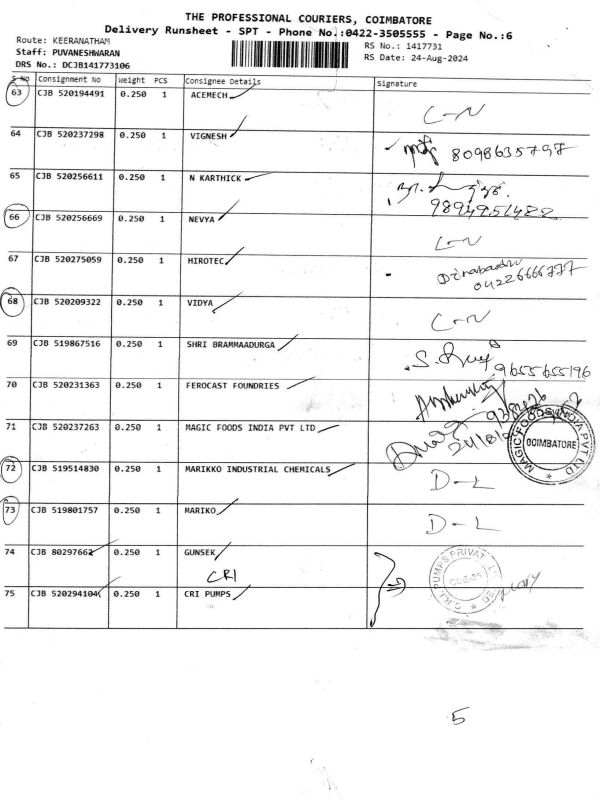 THE PROFESSIONAL COURIERS, COIMBATORE
Delivery Runsheet - SPT - Phone No.:0422-3505555 - Page No.:6
Route: KEERANATHAM RS No.: 1417731
Staff: PUVANESHWARAN RS Date: 24-Aug-2024
DRS No.: DCJB141773106
S No Consignment No Weight PCS Consignee Details Signature
63 CJB 520194491 0.250 1 ACEMECH L-N
64 CJB 520237298 0.250 1 VIGNESH 8098635797
65 CJB 520256611 0.250 1 N KARTHICK 9894951482
66 CJB 520256669 0.250 1 NEVYA L-N
67 CJB 520275059 0.250 1 HIROTEC 04226666777
68 CJB 520209322 0.250 1 VIDYA L-N
69 CJB 519867516 0.250 1 SHRI BRAMMAADURGA 9655655196
70 CJB 520231363 0.250 1 FEROCAST FOUNDRIES
71 CJB 520237263 0.250 1 MAGIC FOODS INDIA PVT LTD MAGIC FOODS INDIA PVT LTD COIMBATORE
72 CJB 519514830 0.250 1 MARIKKO INDUSTRIAL CHEMICALS D-L
73 CJB 519801757 0.250 1 MARIKO D-L
74 CJB 80297662 0.250 1 GUNSEK
CRI
75 CJB 520294104 0.250 1 CRI PUMPS
5